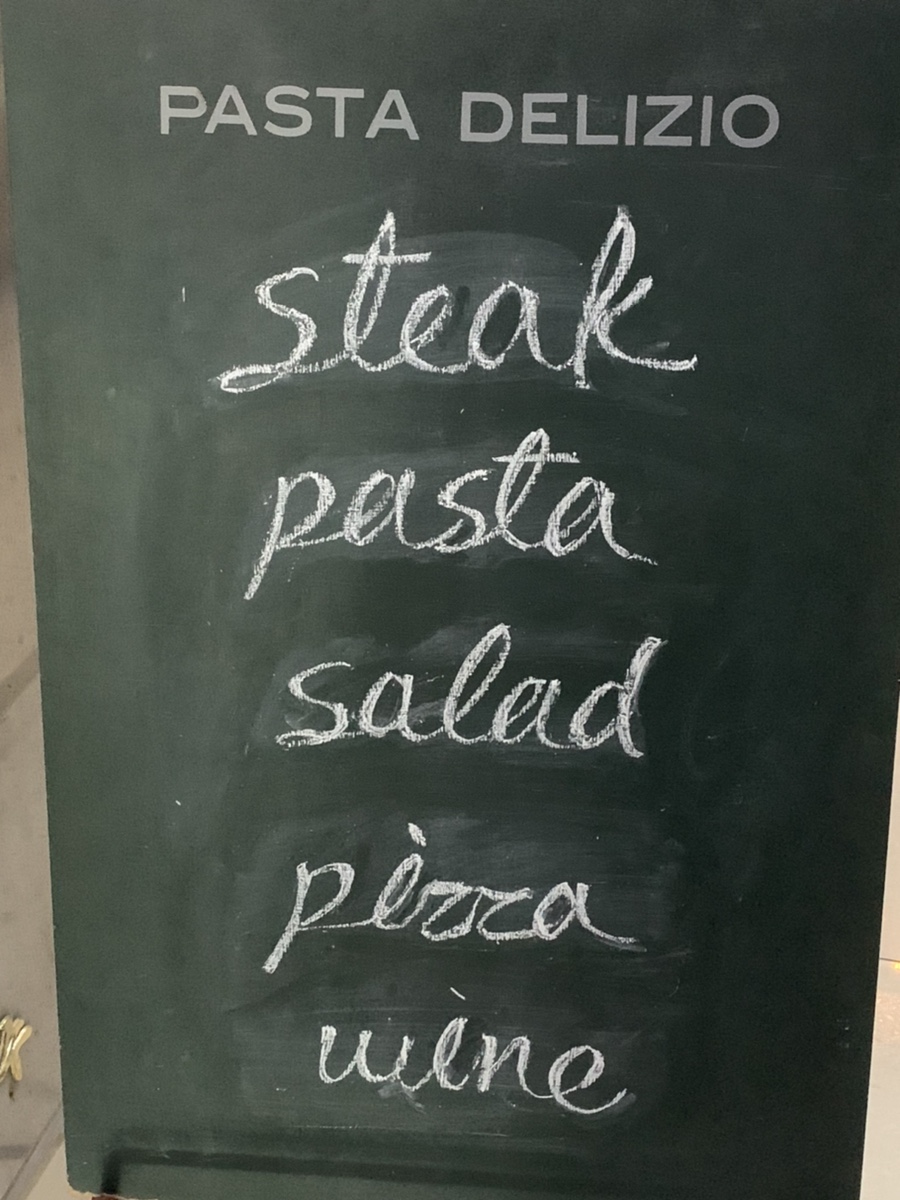 PASTA DELIZIO
steak
pasta
salad
pizza
wine